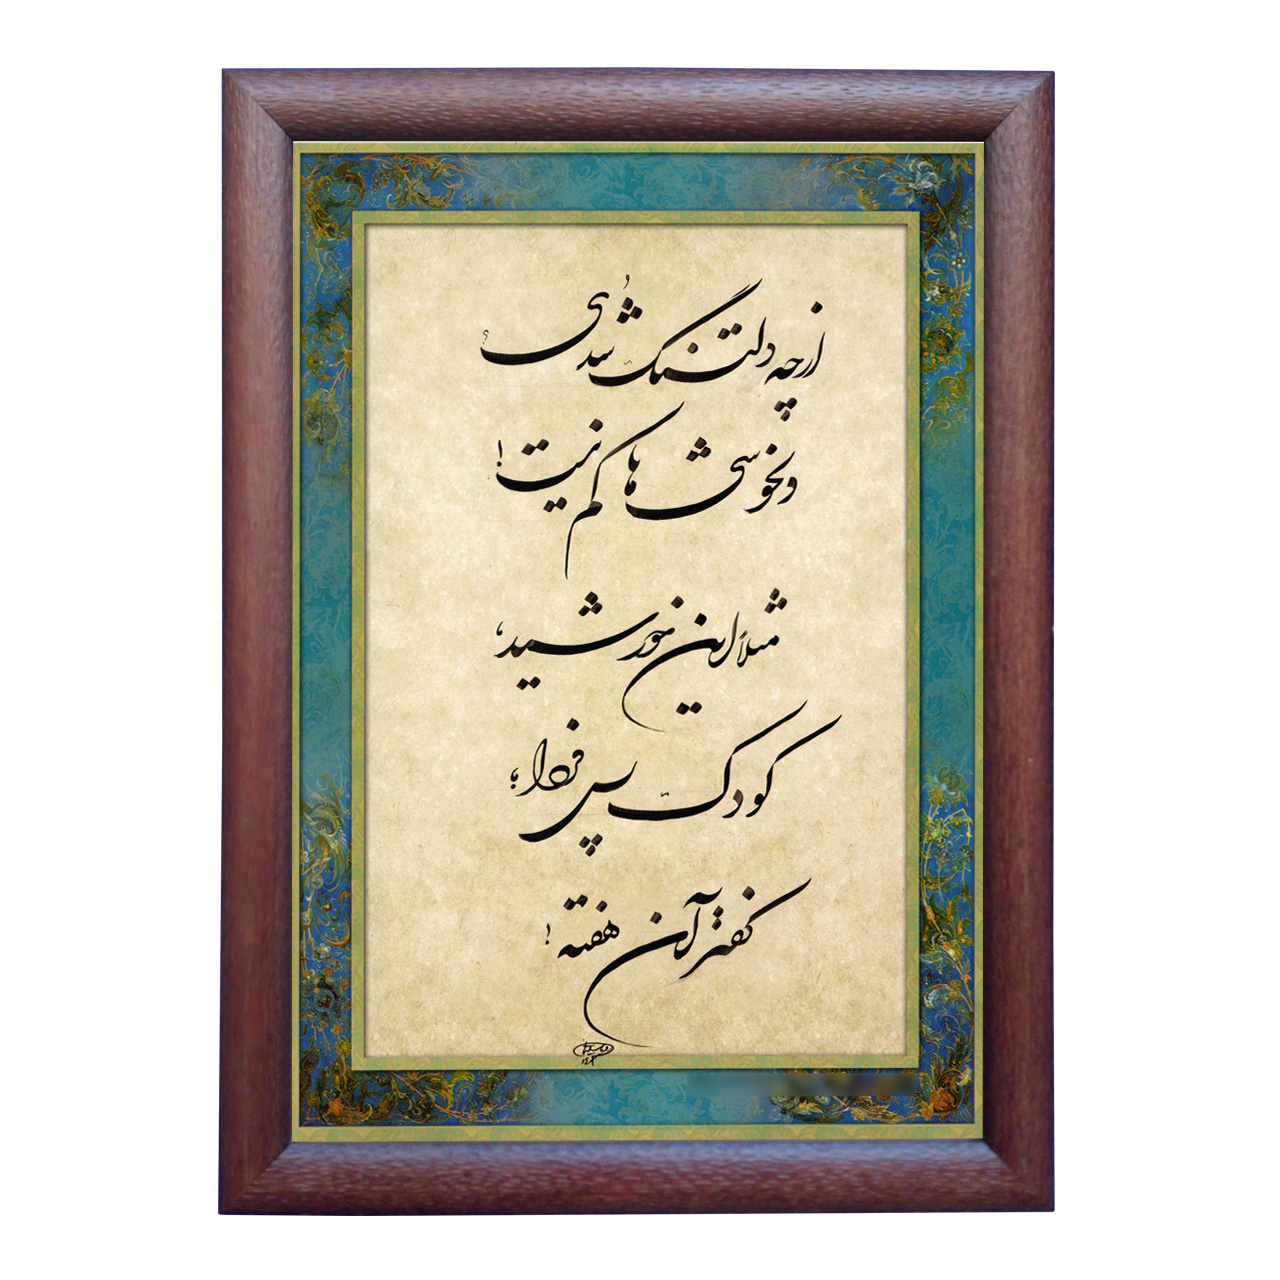 از چه دلتنگ شُدی؟
دلخوشی ها کم نیست!
مثلاً این خورشید،
کودک پس فردا؛
کفتر آن هفته!